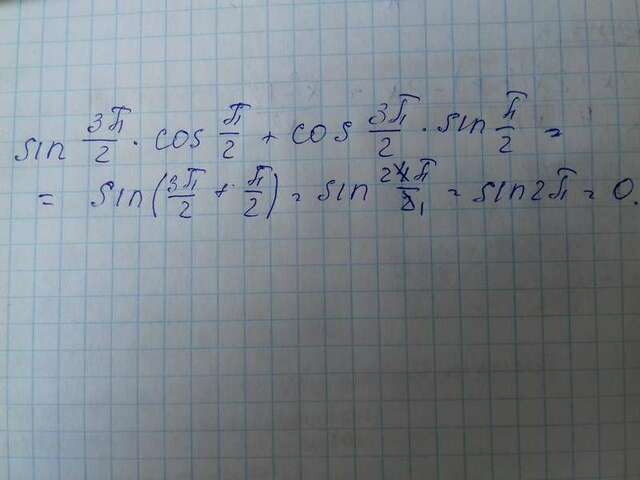 sin 3π/2 · cos π/2 + cos 3π/2 · sin π/2 =
= sin(3π/2 + π/2) = sin 24π/21 = sin2π = 0.